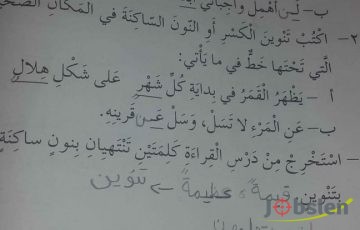 ب- لَن أُهْمِلَ وَاجِبَاتِي
٢- اكْتُبْ تَنْوِينَ الْكَسْرِ أَوِ النّونَ السّاكِنَةَ فِي الْمَكَانِ
الَّتِي تَحْتَهَا خَطٌّ فِي مَا يَأْتِي:
أ - يَظْهَرُ الْقَمَرُ فِي بِدَايَةِ كُلِّ شَهْرٍ عَلَى شَكْلِ هِلَالٍ
ب- عَنِ الْمَرْءِ لَا تَسَلْ، وَسَلْ عَـن قَرِينِهِ.
- اسْتَخْرِجْ مِنْ دَرْسِ الْقِرَاءَةِ كَلِمَتَيْنِ تَنْتَهِيَانِ بِنونٍ ساكِنَةٍ
بِتَنْوِينٍ. قيمةً، عظيمةً ← تنوين
Jobsten